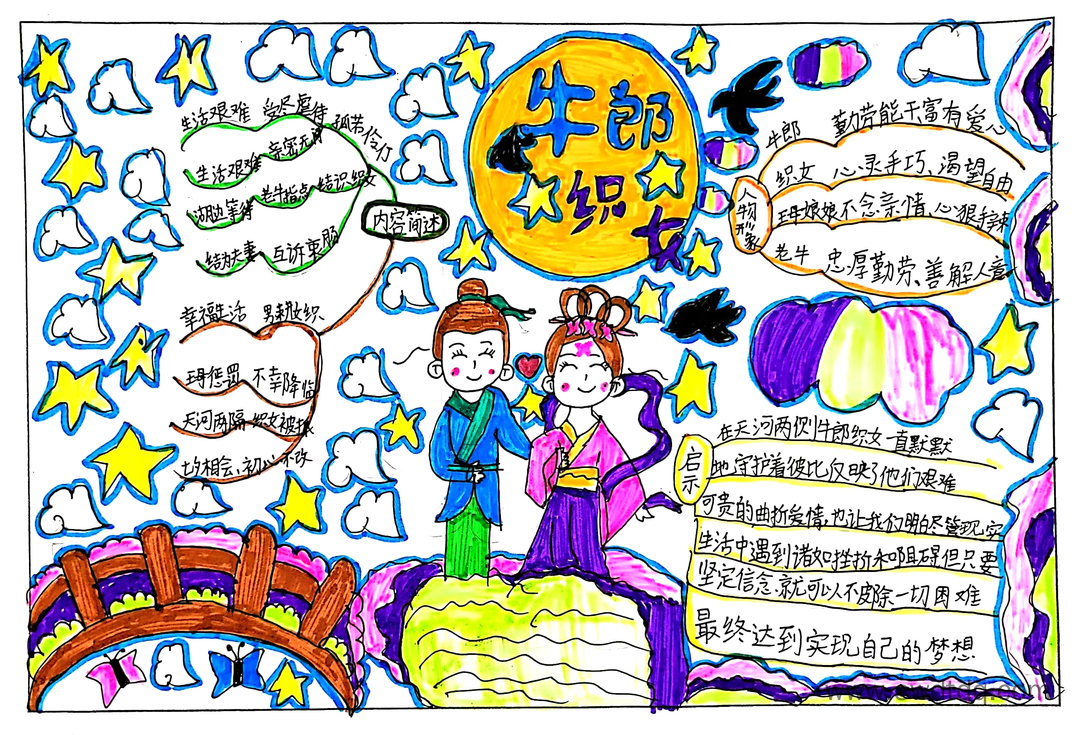 牛郎
织女
生活艰难 受尽虐待 孤苦伶仃
生活艰难 亲密无间
湖边等待 老牛指点 结识织女
结为夫妻 互诉衷肠
内容简述
幸福生活 男耕女织
王母惩罚 不幸降临
天河两隔 织女被抓
相会、初心不改
人物形象
牛郎 勤劳能干富有爱心
织女 心灵手巧、渴望自由
王母娘娘不念亲情、心狠手辣
老牛 忠厚勤劳、善解人意
启示
在天河两侧牛郎织女一直默默
地守护着彼此反映了他们艰难
可贵的曲折爱情,也让我们明白尽管现实
生活中遇到诸如挫折和阻碍但只要
坚定信念,就可以不皮除一切困难
最终达到实现自己的梦想